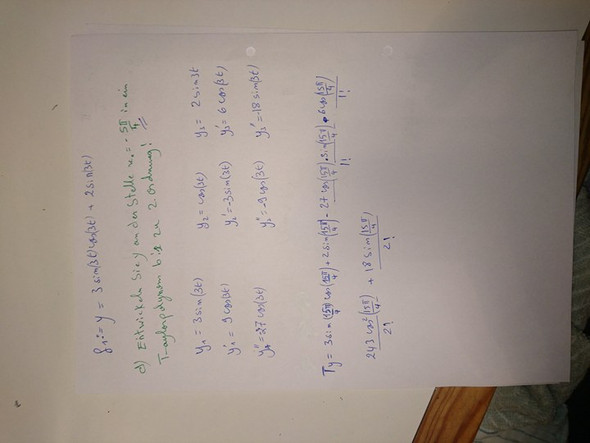 g₁ := y = 3 sin(3t) cos(3t) + 2 sin(3t)
d) Entwickeln Sie y an der Stelle x₀ = -5π/4 in ein
Taylorpolynom bis zu 2. Ordnung!
y₁ = 3 sin(3t) y₂ = cos(3t) y₃ = 2 sin 3t
y₁' = 9 cos(3t) y₂' = -3 sin(3t) y₃' = 6 cos(3t)
y₁'' = 27 cos(3t) y₂'' = -9 cos(3t) y₃'' = -18 sin(3t)
Ty = 3 sin(15π/4) cos(15π/4) + 2 sin(15π/4) - 27 cos(15π/4) · sin(15π/4)/1! + 6 cos(15π/4)/1!
243 cos²(15π/4)/2! + 18 sin(15π/4)/2!